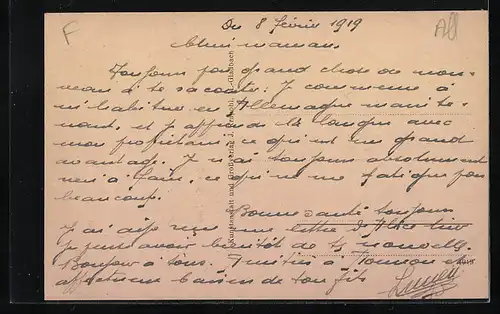 Du 8 février 1919
F
All
Chère maman.
Toujours pas grand chose de nou-
veau à te raconter. Je commence à
m'habituer en Allemagne mainte-
nant, et j'apprends la langue avec
mon propriétaire, ce qui est un grand
avantage. Je n'ai toujours absolument
rien à faire, ce qui ne me fatigue pas
beaucoup.
Bonne santé toujours
J'ai déjà reçu une lettre d'
Je pense avoir bientôt de tes nouvelles.
Bonjour à tous. à et
affectueux baisers de ton fils
Lucien
Kunstanstalt und Großverlag M.-Gladbach